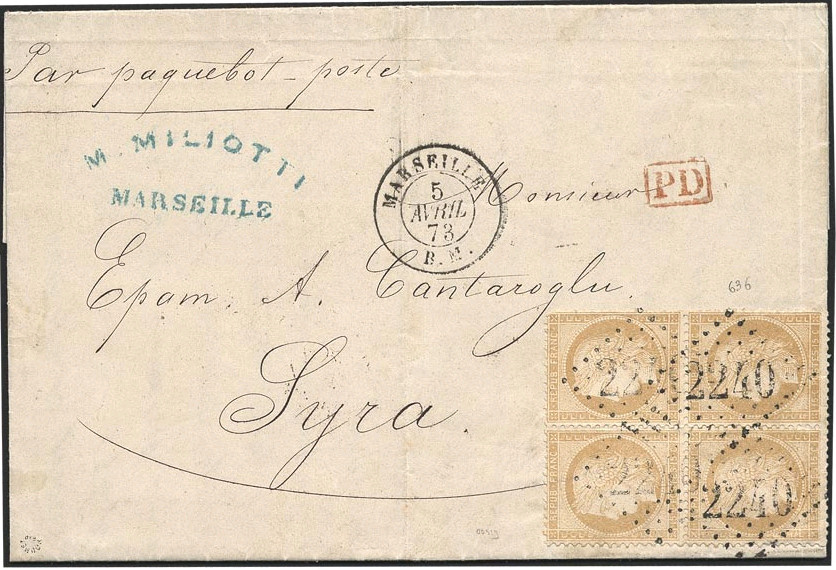 Par paquebot-poste
M. MILIOTTI
MARSEILLE
MARSEILLE
5
AVRIL
73
B. M.
Monsieur
PD
Epam. A. Cantaroglu.
Syra.
636
REPUB FRANC
2240
REPUB FRANC
2240